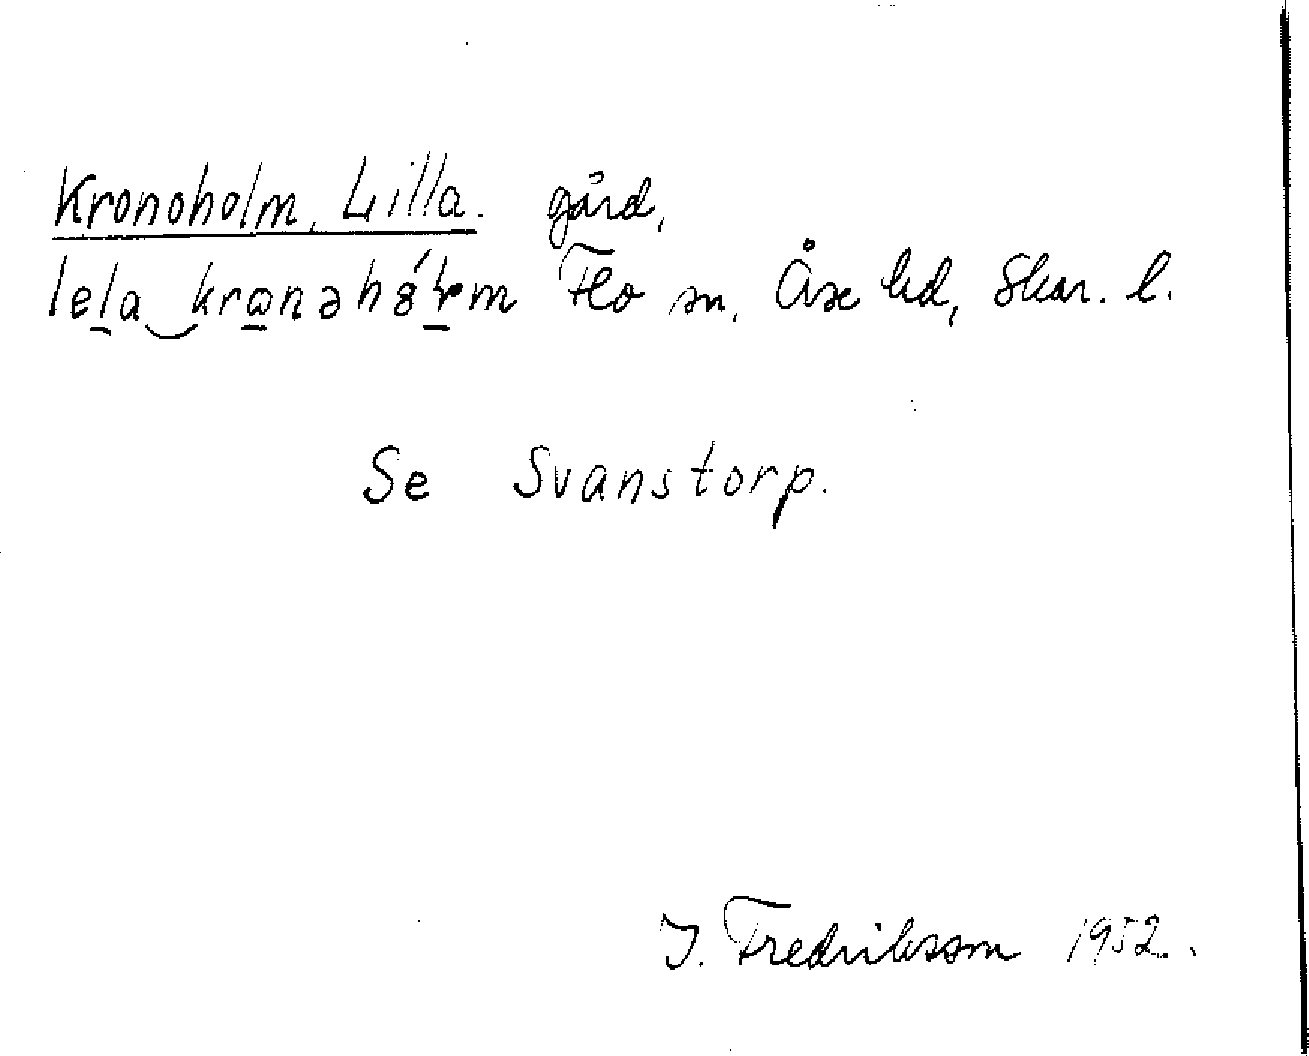 Kronoholm, Lilla. gård,
lela kronəhó̱lm Flo sn, Åse hd, Skar. l.
Se Svanstorp.
I. Fredriksson 1952.